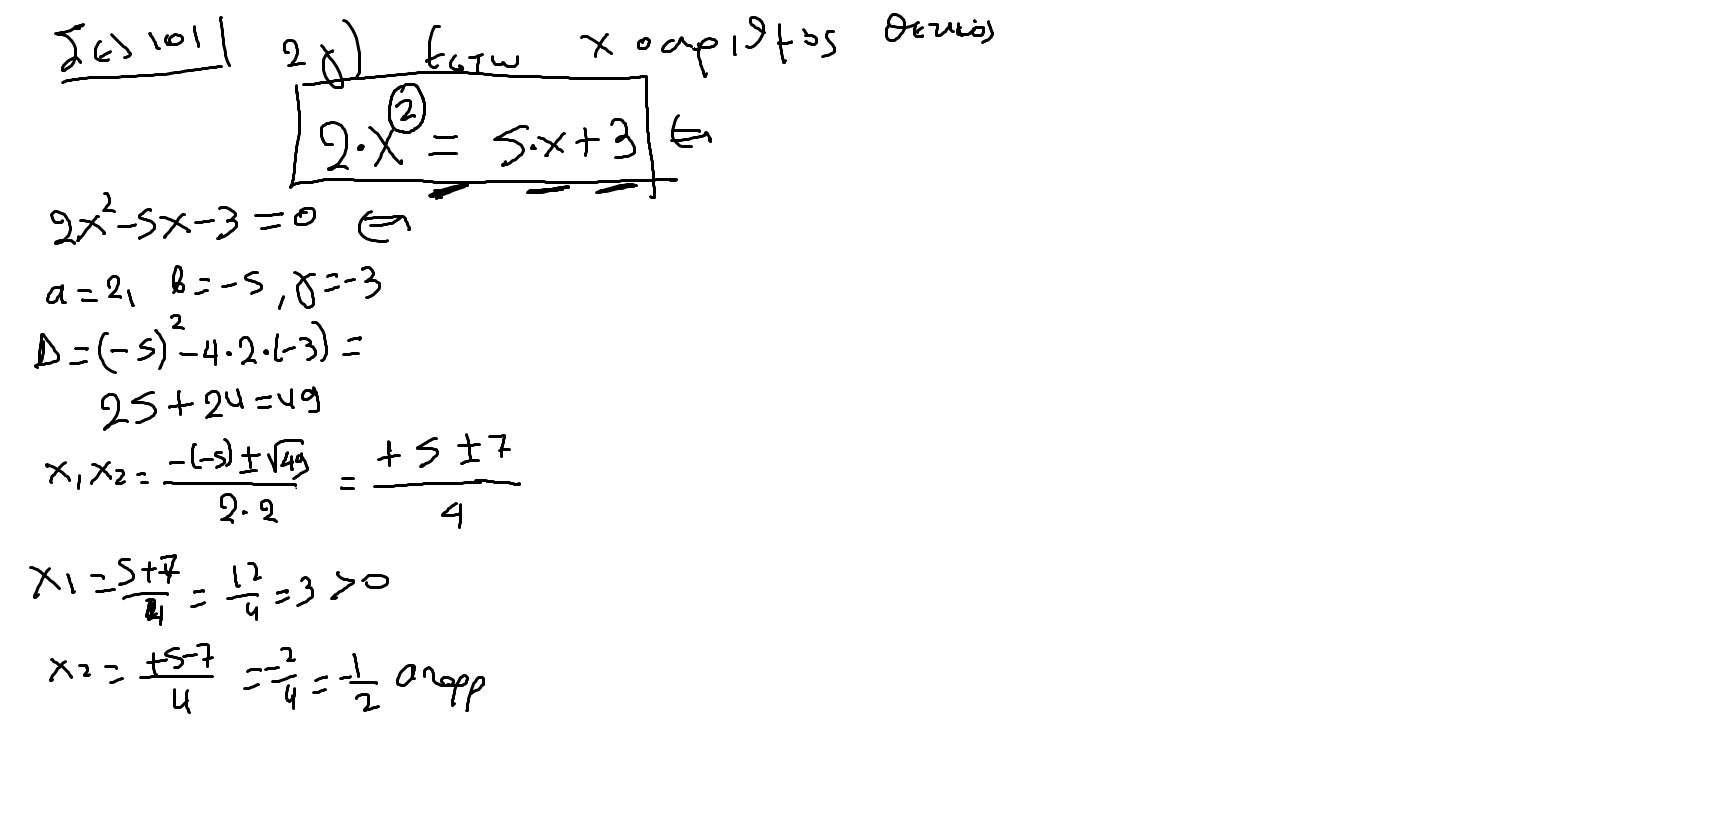 Σελ 101 2γ) Εστω x ο αριθμος θετικος
2·x² = 5·x+3 ⇐
2x²-5x-3=0 ⇐
α=2, β=-5, γ=-3
Δ=(-5)²-4·2·(-3)=
25+24=49
x₁,x₂ = (-(-5)±√49)/(2·2) = (+5±7)/4
x₁ = (5+7)/4 = 12/4 = 3 >0
x₂ = (+5-7)/4 = -2/4 = -1/2 απορρ